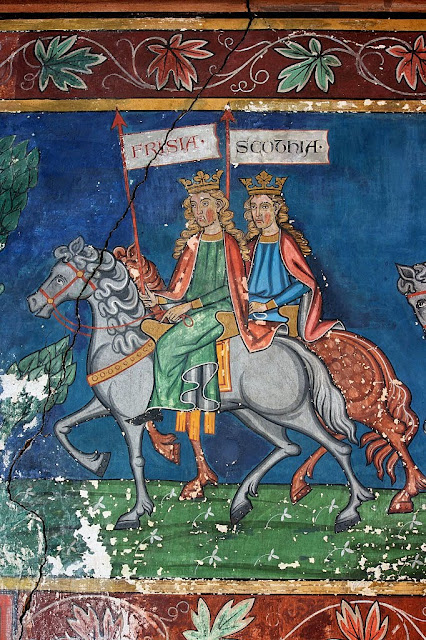 FRISIA·
SCOTHIA·